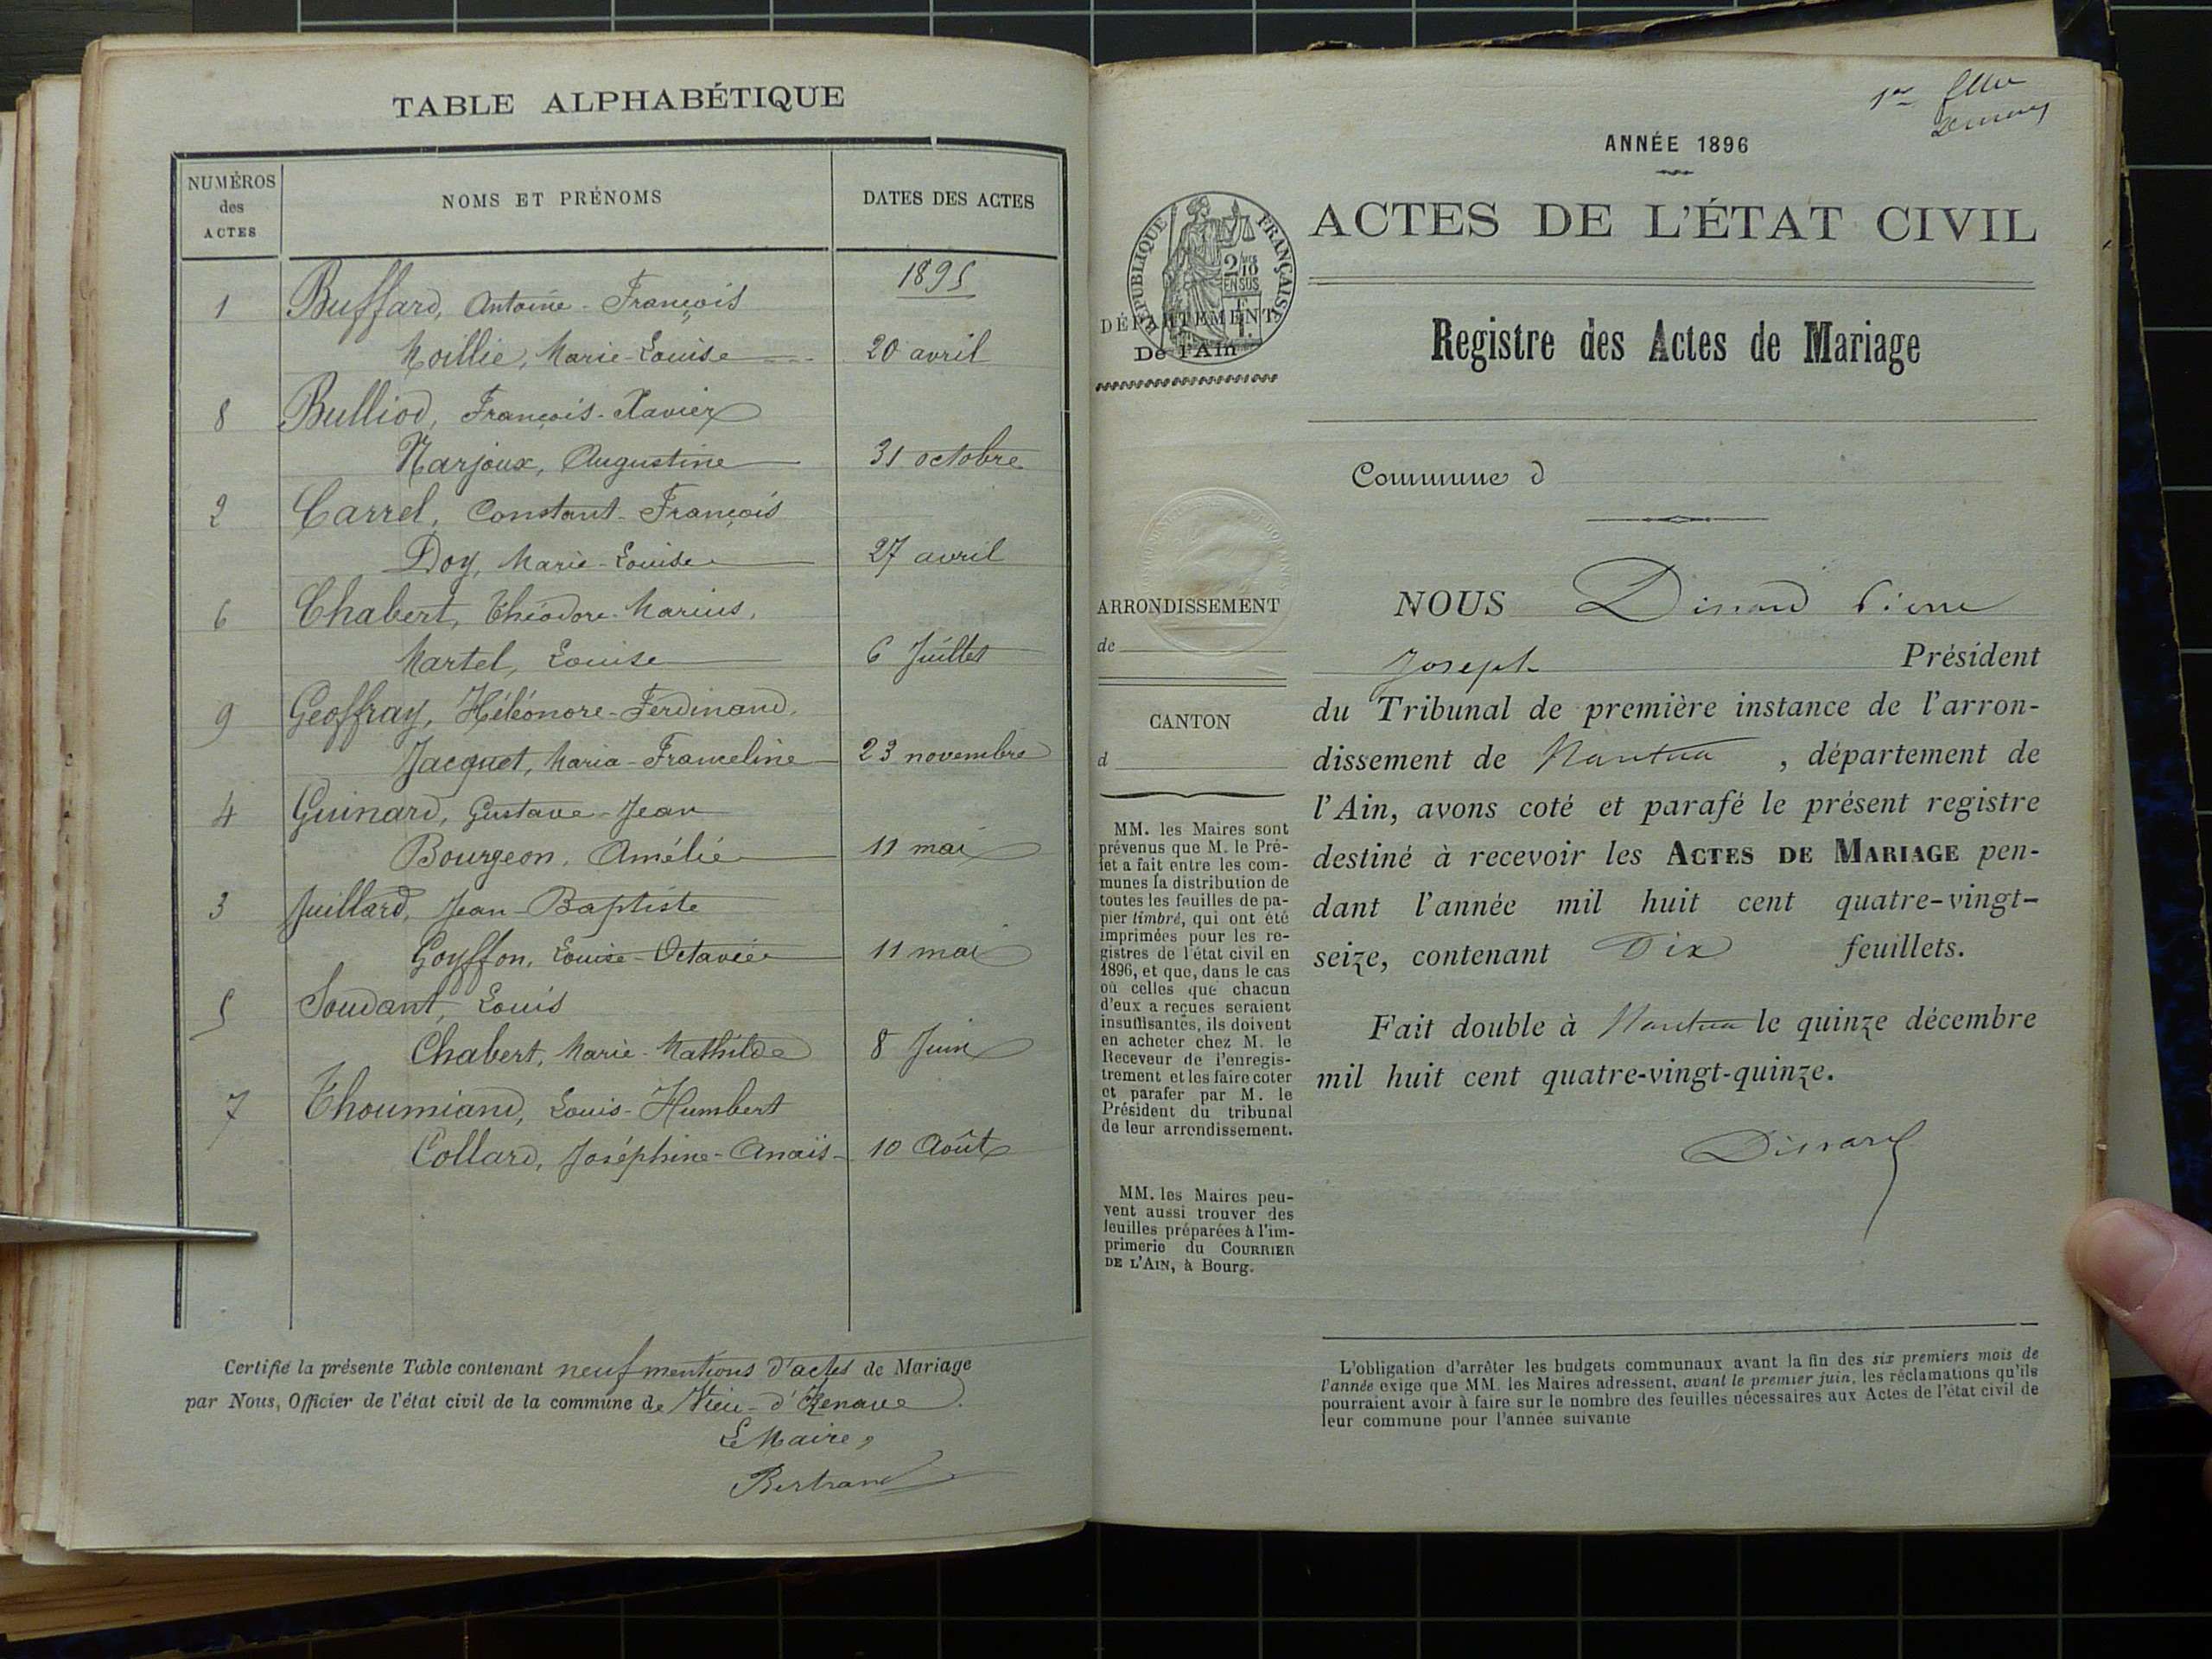 TABLE ALPHABÉTIQUE
NUMÉROS
des
ACTES
NOMS ET PRÉNOMS
DATES DES ACTES
1895
1 Buffard, Antoine-François
Moillie, Marie-Louise 20 avril
8 Bulliod, François-Xavier
Marjoux, Augustine 31 octobre
2 Carrel, Constant-François
Doy, Marie-Louise 27 avril
6 Chabert, Théodore-Marius,
Martel, Louise 6 Juillet
9 Geoffray, Héléonore-Ferdinand,
Jacquet, Maria-Franceline 23 novembre
4 Guinard, Gustave-Jean
Bourgeon, Amélie 11 mai
3 Juillard, Jean-Baptiste
Goyffon, Louise-Octavie 11 mai
5 Soudant, Louis
Chabert, Marie-Mathilde 8 Juin
7 Thoumiand, Louis-Humbert
Collard, Joséphine-Anaïs 10 Août
Certifié la présente Table contenant neuf mentions d'actes de Mariage
par Nous, Officier de l'état civil de la commune de Vieu-d'Izenave.
Le Maire,
Bertrand
ANNÉE 1896
ACTES DE L'ÉTAT CIVIL
RÉPUBLIQUE FRANÇAISE
2/10
EN SUS
DÉPARTEMENT
De l'Ain
Registre des Actes de Mariage
Commune d
ARRONDISSEMENT
de
CANTON
d
MM. les Maires sont
prévenus que M. le Pré-
fet a fait entre les com-
munes la distribution de
toutes les feuilles de pa-
pier timbré, qui ont été
imprimées pour les re-
gistres de l'état civil en
1896, et que, dans le cas
où celles que chacun
d'eux a reçues seraient
insuffisantes, ils doivent
en acheter chez M. le
Receveur de l'enregis-
trement et les faire coter
et parafer par M. le
Président du tribunal
de leur arrondissement.
MM. les Maires peu-
vent aussi trouver des
feuilles préparées à l'im-
primerie du COURRIER
DE L'AIN, à Bourg.
NOUS Pierre
Joseph Président
du Tribunal de première instance de l'arron-
dissement de Nantua, département de
l'Ain, avons coté et parafé le présent registre
destiné à recevoir les ACTES DE MARIAGE pen-
dant l'année mil huit cent quatre-vingt-
seize, contenant Dix feuillets.
Fait double à Nantua le quinze décembre
mil huit cent quatre-vingt-quinze.
L'obligation d'arrêter les budgets communaux avant la fin des six premiers mois de
l'année exige que MM. les Maires adressent, avant le premier juin, les réclamations qu'ils
pourraient avoir à faire sur le nombre des feuilles nécessaires aux Actes de l'état civil de
leur commune pour l'année suivante